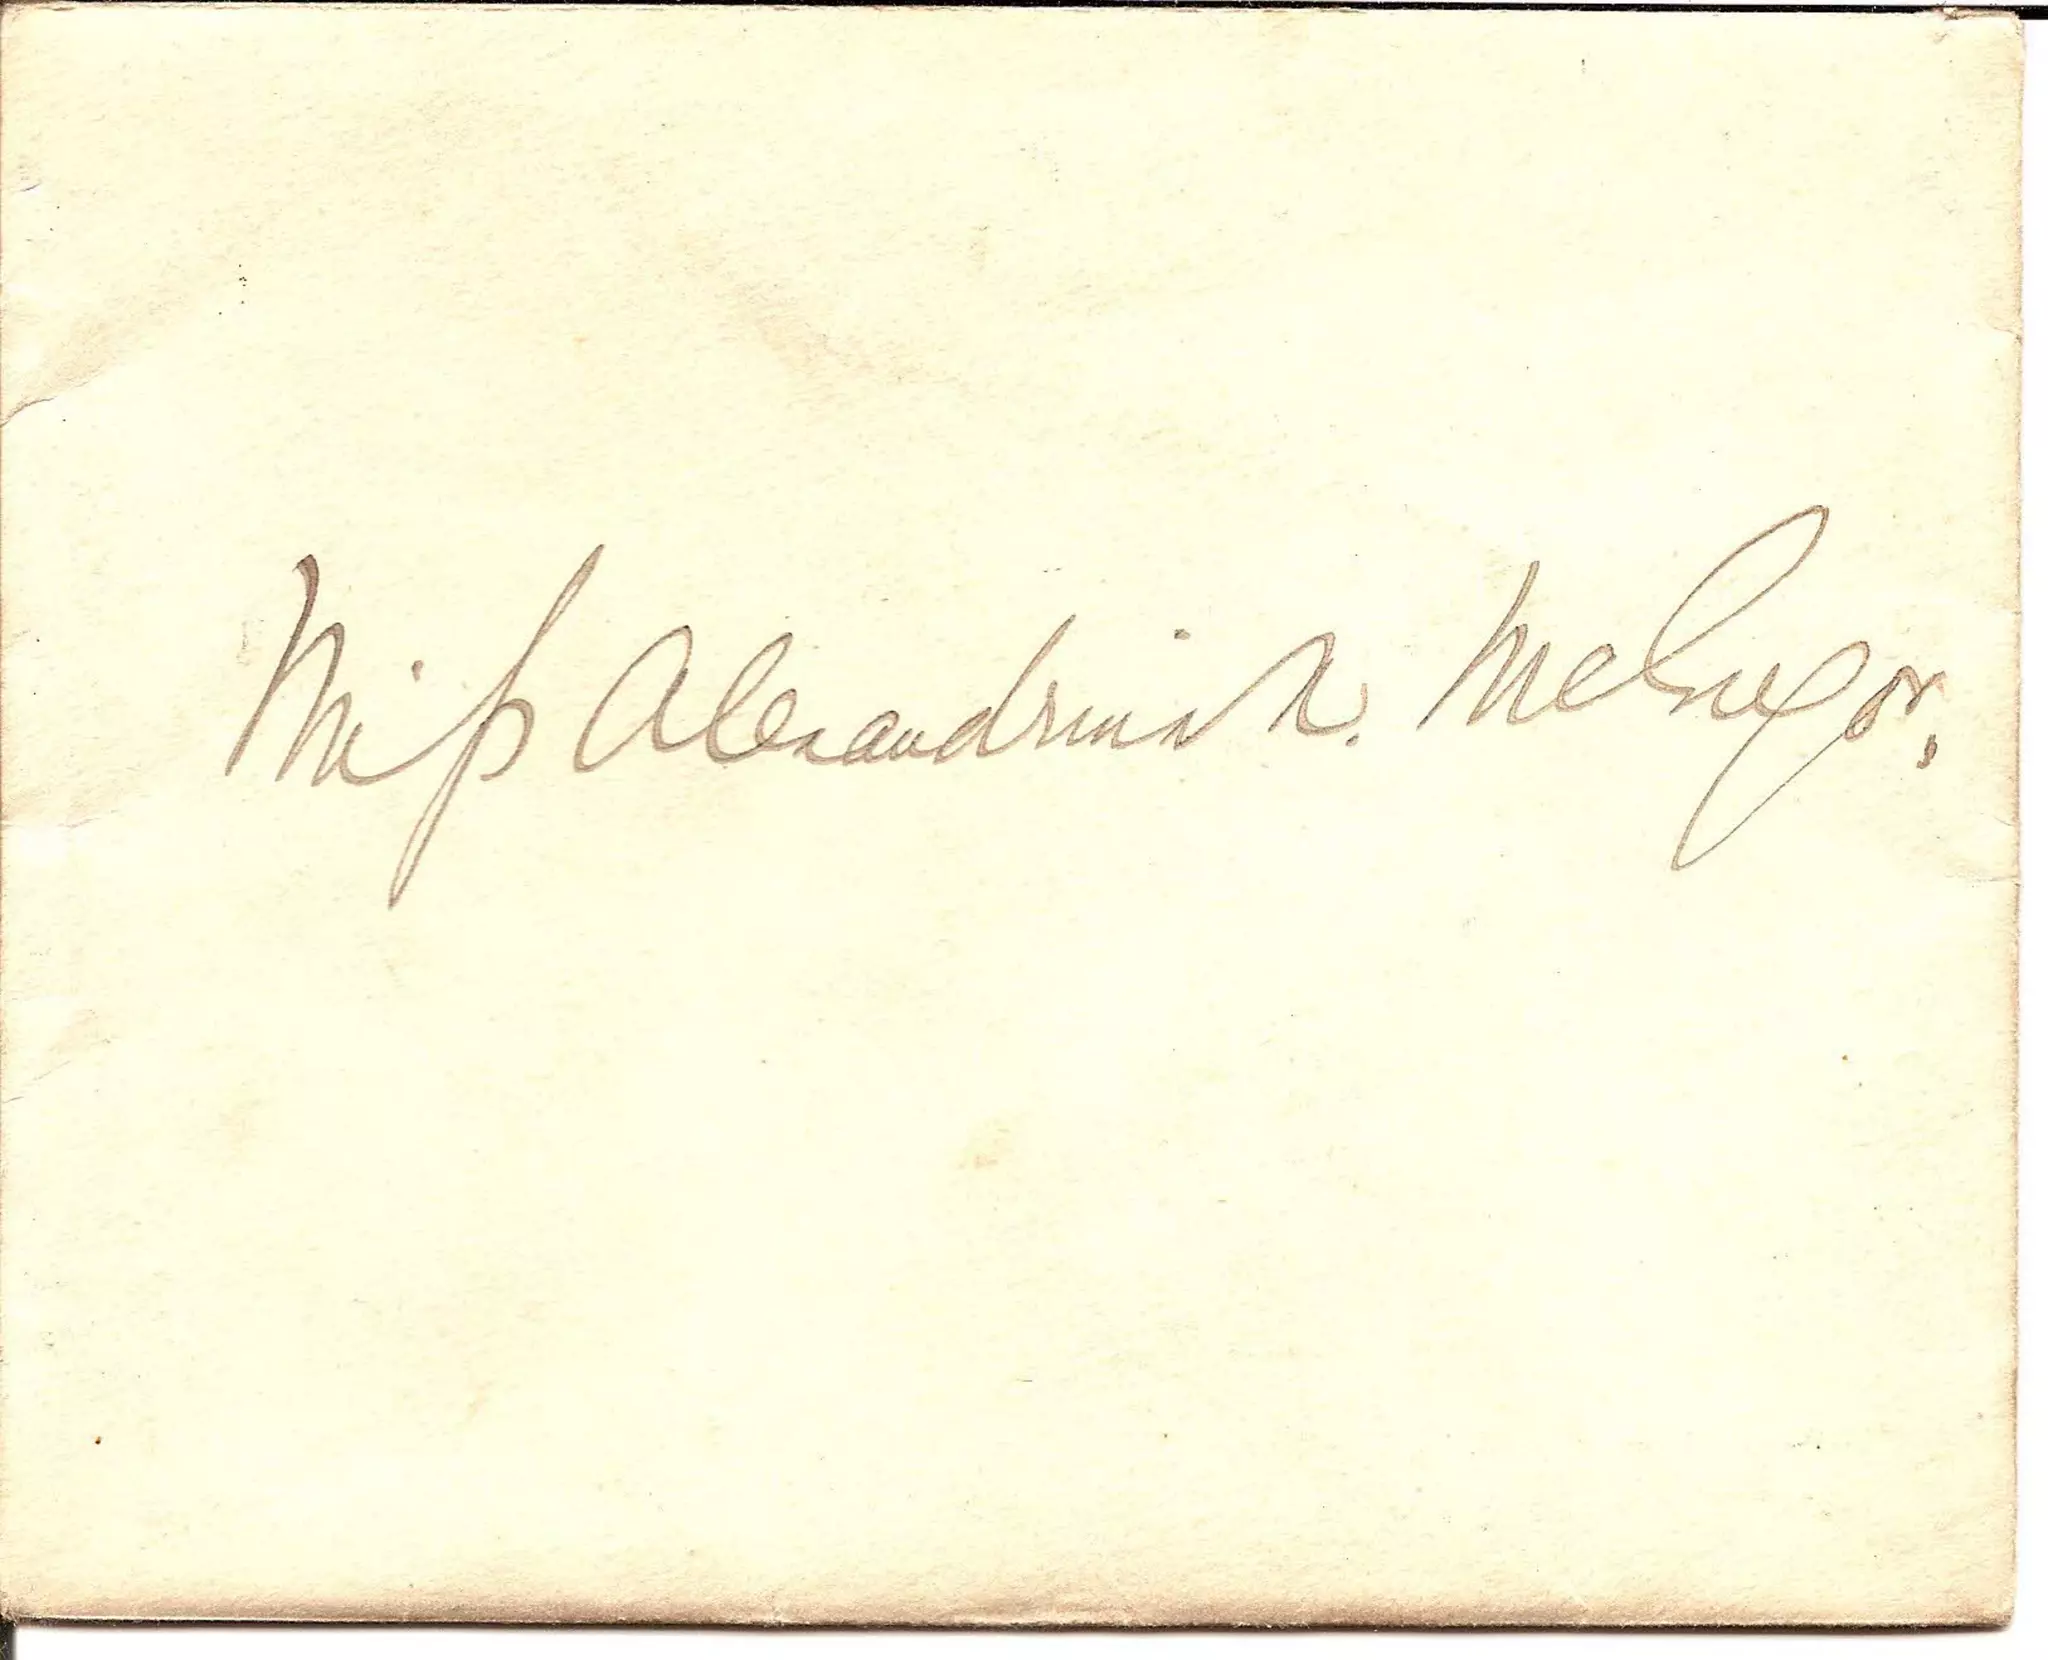 Miss Alexandrina A. McGregor,